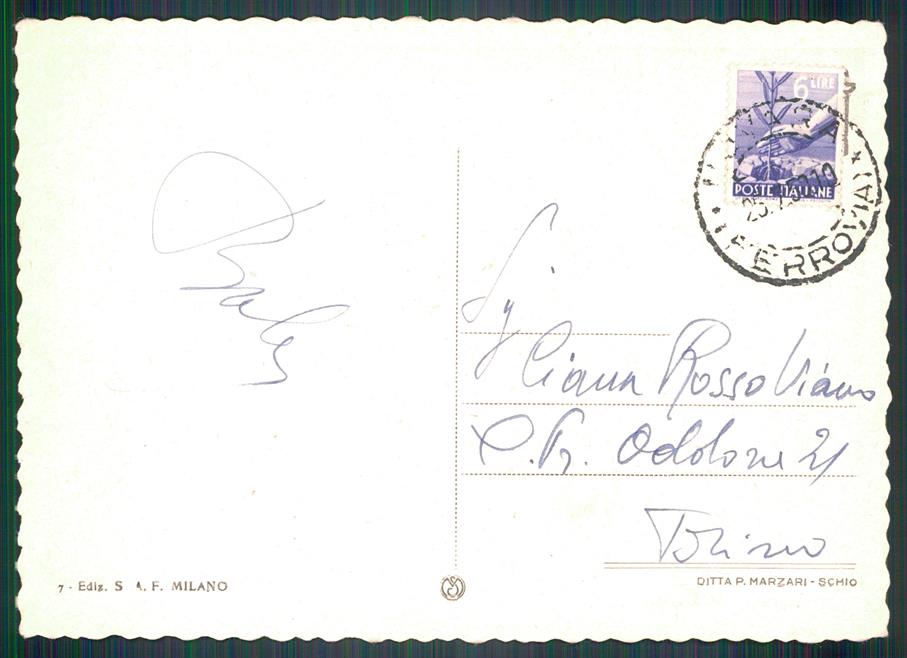 6 LIRE
POSTE ITALIANE
FERROVIA
Sig
Liana Rosso Viano
C. Pr. Oddone 21
Torino
7 - Ediz. S A. F. MILANO
DITTA P. MARZARI - SCHIO